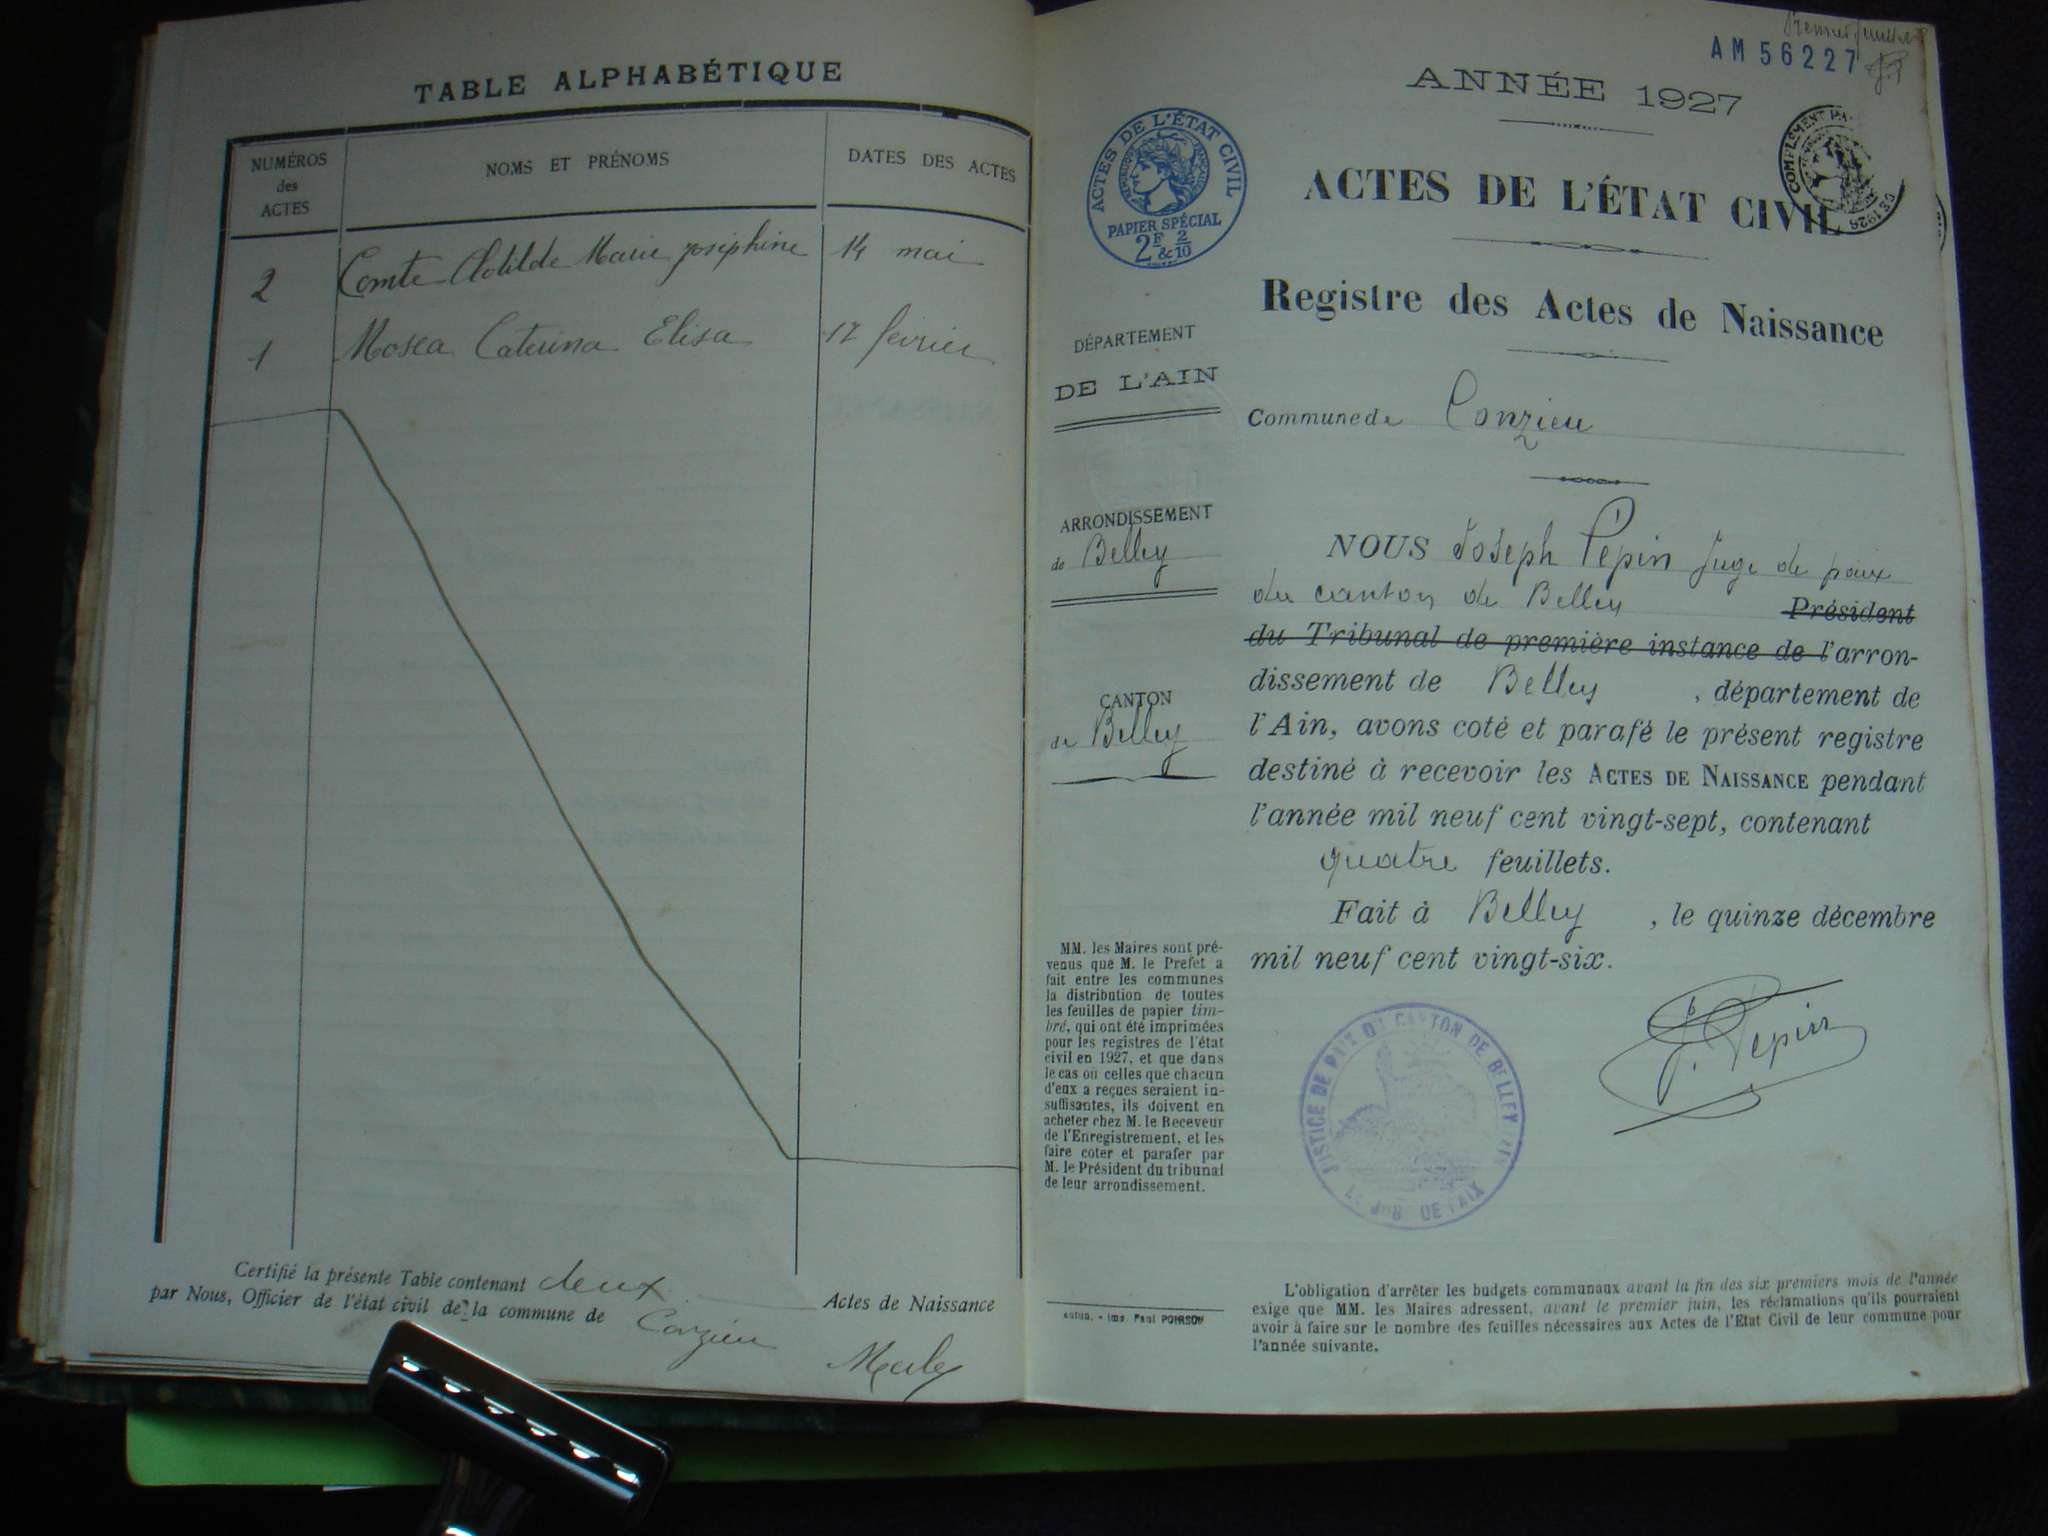 TABLE ALPHABÉTIQUE
NUMÉROS
des
ACTES
NOMS ET PRÉNOMS
DATES DES ACTES
2 Comte Clotilde Marie Joséphine 14 mai
1 Mosca Caterina Elisa 17 février
Certifié la présente Table contenant deux Actes de Naissance
par Nous, Officier de l'état civil de la commune de Conzieu
Merle
Premier feuillet
AM 56227
ANNÉE 1927
ACTES DE L'ÉTAT CIVIL
PAPIER SPÉCIAL
2F & 2/10
ACTES DE L'ÉTAT CIVIL
Registre des Actes de Naissance
DÉPARTEMENT
DE L'AIN
Commune de Conzieu
ARRONDISSEMENT
de Belley
CANTON
de Belley
NOUS Joseph Pépin Juge de paix
du canton de Belley Président
du Tribunal de première instance de l'arron-
dissement de Belley , département de
l'Ain, avons coté et parafé le présent registre
destiné à recevoir les ACTES DE NAISSANCE pendant
l'année mil neuf cent vingt-sept, contenant
quatre feuillets.
Fait à Belley , le quinze décembre
mil neuf cent vingt-six.
J. Pépin
JUSTICE DE PAIX DU CANTON DE BELLEY (AIN)
MM. les Maires sont pré-
venus que M. le Prefet a
fait entre les communes
la distribution de toutes
les feuilles de papier tim-
bré, qui ont été imprimées
pour les registres de l'état
civil en 1927, et que dans
le cas où celles que chacun
d'eux a reçues seraient in-
suffisantes, ils doivent en
acheter chez M. le Receveur
de l'Enregistrement, et les
faire coter et parafer par
M. le Président du tribunal
de leur arrondissement.
Imp. Paul POIRSON
L'obligation d'arrêter les budgets communaux avant la fin des six premiers mois de l'année
exige que MM. les Maires adressent, avant le premier juin, les réclamations qu'ils pourraient
avoir à faire sur le nombre des feuilles nécessaires aux Actes de l'Etat Civil de leur commune pour
l'année suivante.